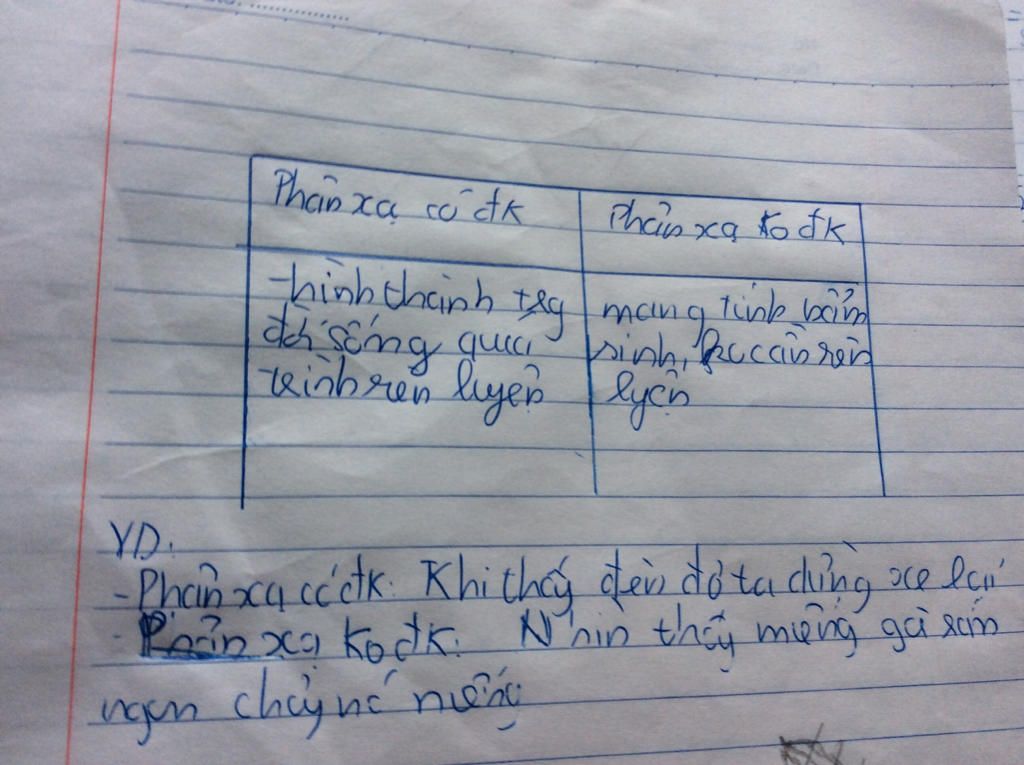 Phản xạ có đk
Phản xạ ko đk
-hình thành trg
đời sống qua
trình rèn luyện
mang tính bẩm
sinh, cần rèn
lyện
VD:
-Phản xạ có đk: Khi thấy đèn đỏ ta dừng xe lại
-Phản xạ ko đk: Nhìn thấy miếng gà rán
ngon chảy nước miếng